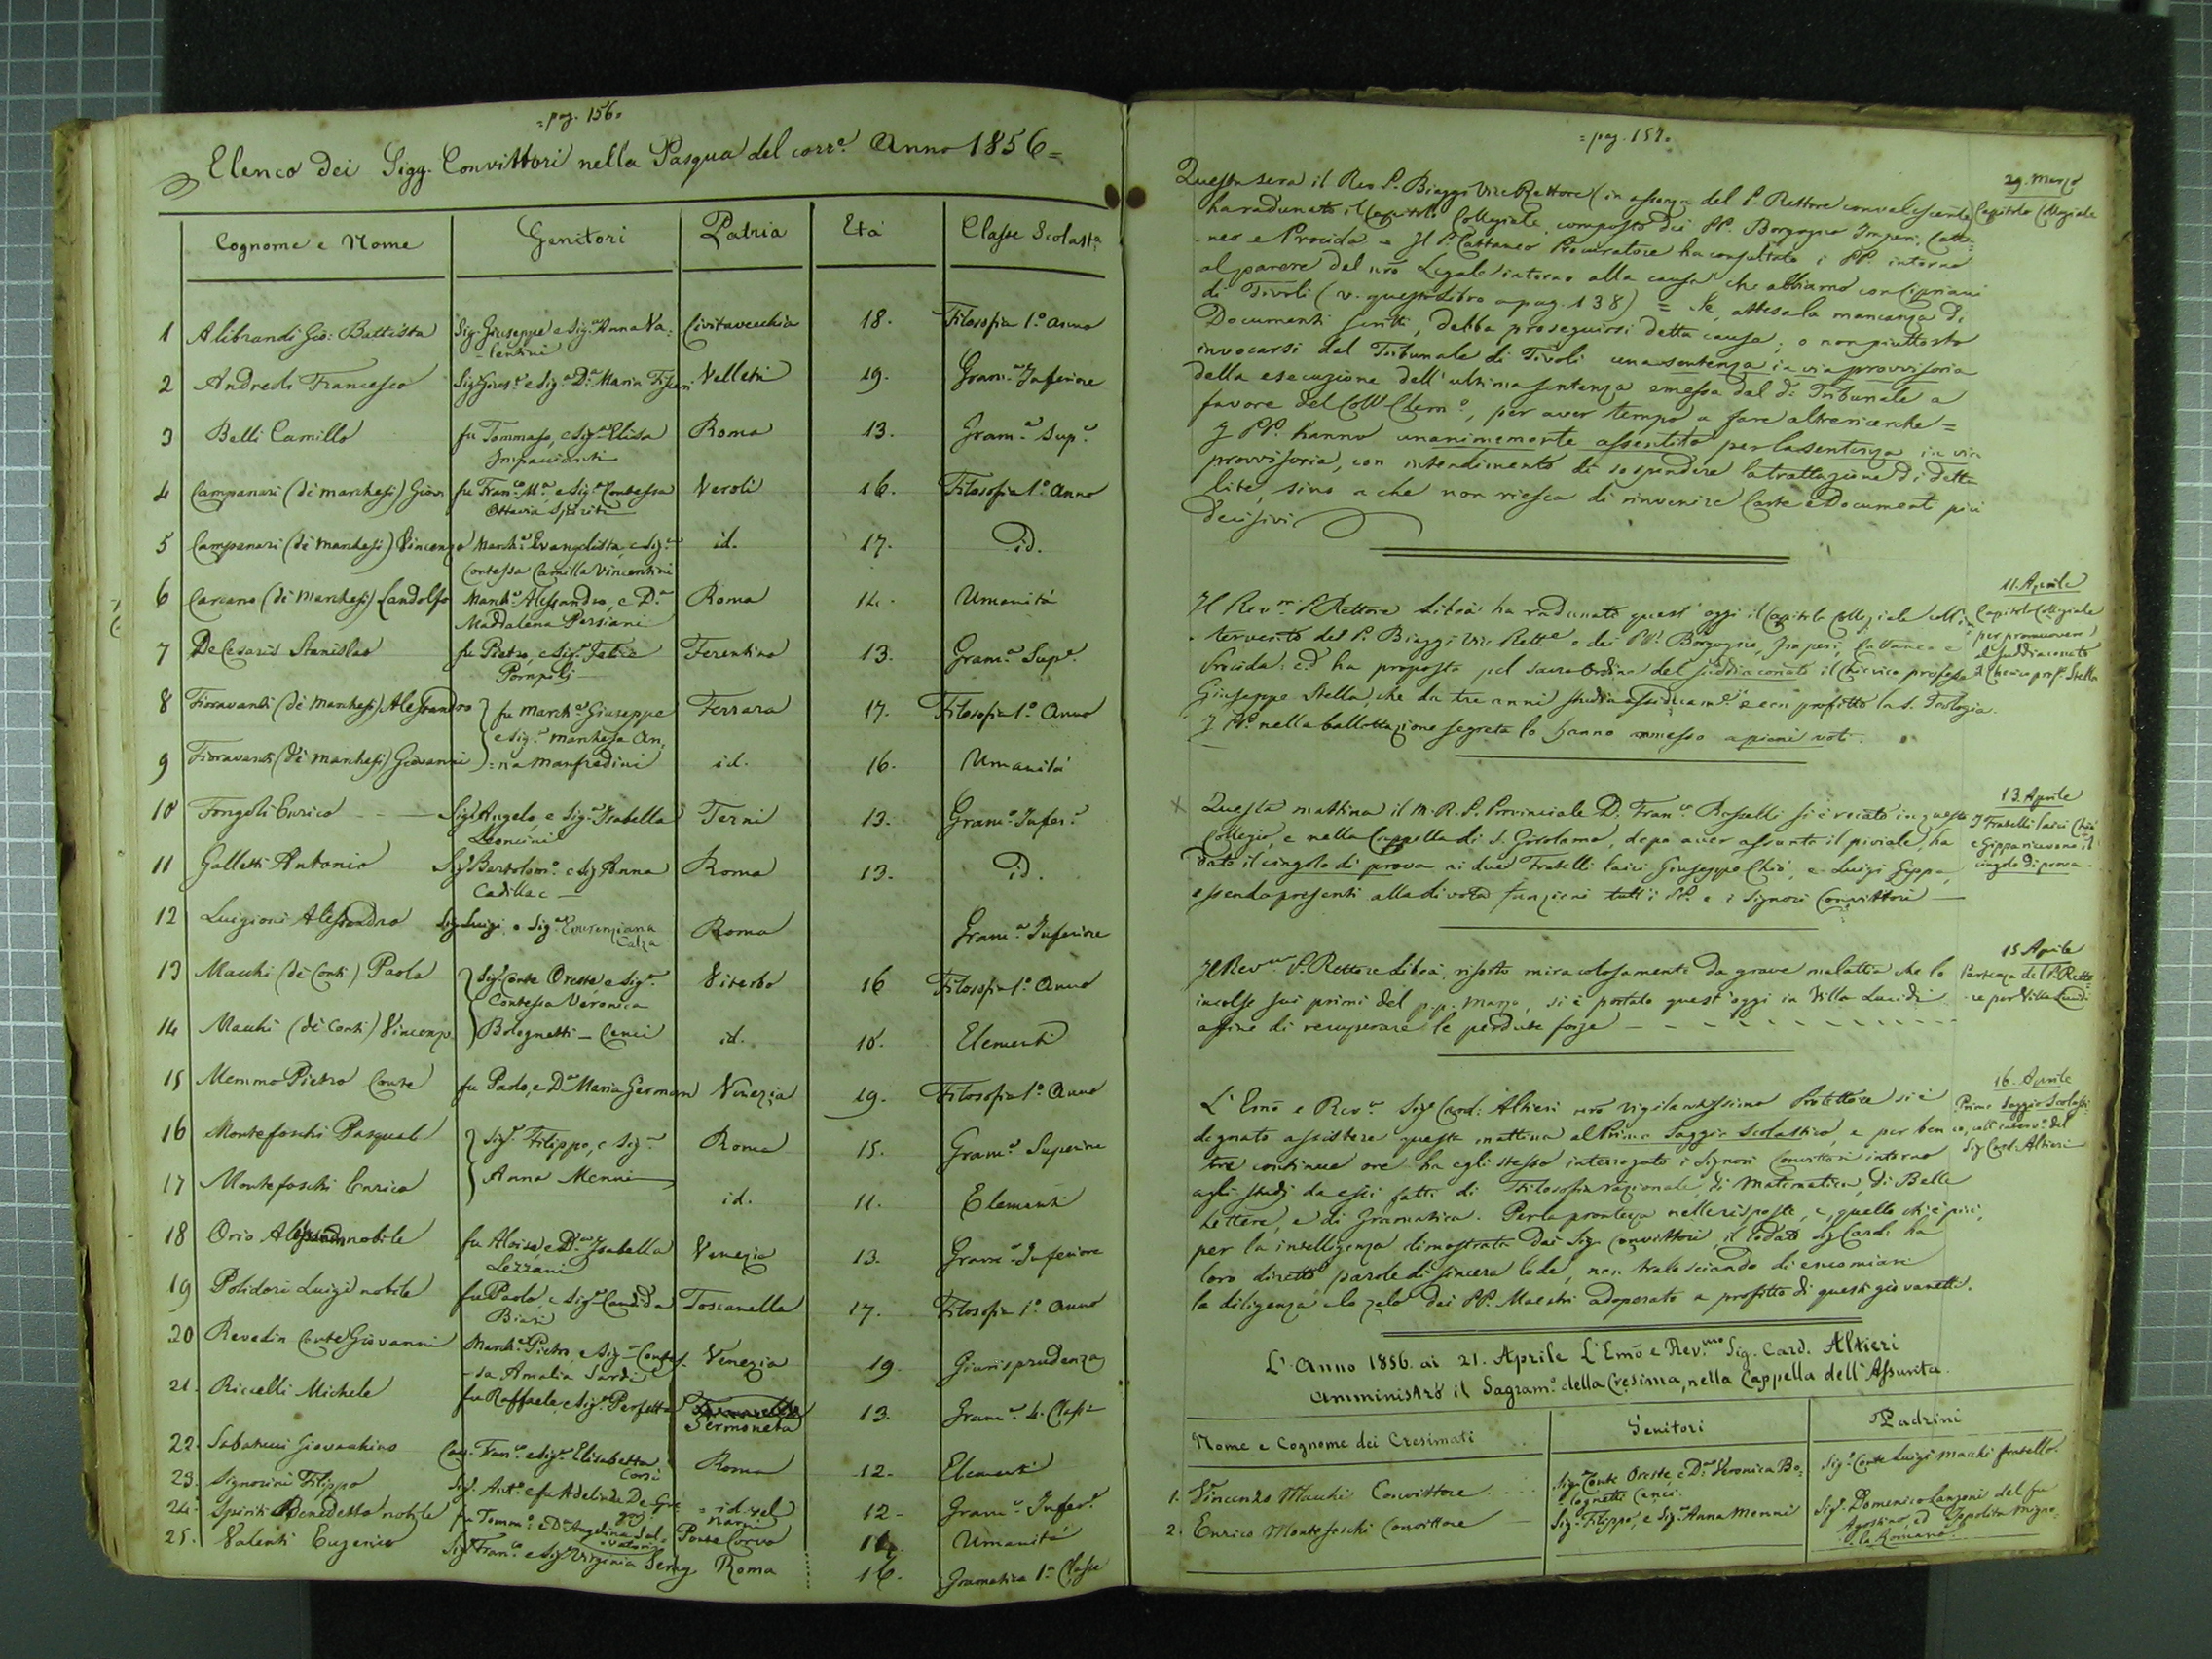 = pag. 156 =
Elenco dei Sigg. Convittori nella Pasqua del corr.e Anno 1856 =
Cognome e Nome Genitori Patria Età Classe Scolast.a
1 Alibrandi Gio: Battista Sig. Giuseppe e Sig.a Anna Va= Civitavecchia 18. Filosofia 1.o anno
=lentini
2 Andreoli Francesco Sig. Gius.e e Sig.a D.a Maria Velletri 19. Gram.a Inferiore
3 Belli Camillo fu Tommaso, e Sig.a Elisa Roma 13. Gram.a Sup.e
Impaccianti
4 Campanari (dè marchesi) Giov. fu Fran.co M.a e Sig.a Contessa Veroli 16. Filosofia 1.o Anno
Ottavia Spiriti
5 Campanari (dè marchesi) Vincenzo March.e Evangelista, e Sig.a id. 17. id.
Contessa Camilla Vincentini
6 Carcano (dè Marchesi) Landolfo March.e Alessandro, e D.a Roma 14. Umanità
Maddalena Persiani
7 De Cesaris Stanislao fu Pietro, e Sig.a Felice Ferentino 13. Gram.a Sup.e
Pompilj
8 Fioravanti (dè Marchesi) Alessandro fu March.e Giuseppe Ferrara 17. Filosofia 1.o Anno
e Sig.a marchesa An=
9 Fioravanti (dè marchesi) Giovanni =na Manfredini id. 16. Umanità
10 Fongoli Enrico - - - Sig. Angelo, e Sig.a Isabella Terni 13. Gram.a Infer.e
Leoncini
11 Galletti Antonio Sig. Bartolom.o e Sig. Anna Roma 13. id.
Cadillac
12 Luigioni Alessandro Sig. Luigi e Sig.a Emerenziana Roma Gram.a Inferiore
Calza
13 Macchi (dè Conti) Paolo Sig. Conte Oreste, e Sig.a Viterbo 16 Filosofia 1.o Anno
Contessa Veronica
14 Macchi (dè Conti) Vincenzo Bolognetti - Cenci id. 10. Elementi
15 Memmo Pietro Conte fu Paolo, e D.a Maria German Venezia 19. Filosofia 1.o Anno
16 Montefoschi Pasquale Sig. Filippo, e Sig.a Roma 15. Gram.a Superiore
17 Montefoschi Enrico Anna Menni id. 11. Elementi
18 Orio nobile fu Aloise, e D.a Isabella Venezia 13. Gram.a Inferiore
Lezzani
19 Polidori Luigi nobile fu Paolo, e Sig.a Candida Toscanella 17. Filosofia 1.o Anno
Biasi
20 Revedin Conte Giovanni March.e Pietro, e Sig.a Contes= Venezia 19. Giurisprudenza
=sa Amalia Sardi
21. Riccelli Michele fu Raffaele, e Sig.a Perfetta 13. Gram.a 4. Classe
Sermoneta
22. Sabatucci Giovacchino Cav. Fran.co e Sig.a Elisabetta Roma 12. Elementi
Corsi
23. Signorini Filippo Sig. Ant.o e fu Adelinda De Gre= = id. vel 12 - Gram.a Infer.e
gorj Narni
24. Spiriti Benedetto nobile fu Tomm.o e D.a Angelina Sal= Ponte Corvo Umanità
25. Valenti Eugenio Sig. Fran.co e Sig.a Virginia Roma 16. Gramatica 1.a Classe
= pag. 157 =
29. Marzo
Capitolo Collegiale
Questa sera il Rev. P. Biaggi Vice Rettore (in assenza del P. Rettore convalescente)
ha radunato il Capitolo Collegiale, composto dei PP. Borgogno Imperi, Catta=
=neo e Procida = Il P. Cattaneo Procuratore ha consultato i PP. intorno
al parere del nrō Legale intorno alla causa che abbiamo con Cipriani
di Tivoli (v. questo Libro a pag. 138) = Se, attesa la mancanza di
Documenti scritti, debba proseguirsi detta causa; o non piuttosto
invocarsi dal Tribunale di Tivoli una sentenza in via provvisoria
della esecuzione dell'ultima sentenza emessa dal d.o Tribunale a
favore del Coll.o Clem.o, per aver tempo a fare altre ricerche =
I PP. hanno unanimemente assentito per la sentenza in via
provvisoria, con intendimento di sospendere la trattazione di detta
lite, sino a che non riesca di rinvenire Carte e Documenti più
decisivi
11. Aprile
Capitolo Collegiale
per promuovere
al suddiaconato
il Chierico prof. Stella
Il Rev.mo P. Rettore Libois ha radunato quest'oggi il Capitolo Collegiale coll'in=
=tervento del P. Biaggi Vice Rett.e e dei PP. Borgogno, Imperi, Cattaneo e
Procida: ed ha proposto pel sacro Ordine del suddiaconato il Chierico professo
Giuseppe Stella, che da tre anni studia assiduam.e e con profitto la S. Teologia.
I PP. nella ballottazione segreta lo hanno ammesso a pieni voti.
13. Aprile
I Fratelli laici Chiò
e Gippa ricevono il
cingolo di prova.
Questa mattina il M. R. P. Provinciale D. Fran.co Rosselli si è recato in questo
Collegio, e nella Cappella di S. Girolamo, dopo aver assunto il piviale, ha
dato il cingolo di prova ai due Fratelli laici Giuseppe Chiò, e Luigi Gippa,
essendo presenti alla divota funzione tutt'i PP. e i Signori Convittori
15 Aprile
Partenza del P. Retto=
=re per Villa Lucidi
Il Rev.mo P. Rettore Libois, risorto miracolosamente da grave malattia che lo
incolse sui primi del p.p. Marzo, si è portato quest'oggi in Villa Lucidi
affine di recuperare le perdute forze
16. Aprile
Primo Saggio Scolasti=
co, coll'interv.o del
Sig. Card. Altieri
L'Emō e Rev.mo Sig. Card: Altieri nrō vigilantissimo Protettore si è
degnato assistere questa mattina al Primo Saggio Scolastico, e per ben
tre continue ore ha egli stesso interrogato i Signori Convittori intorno
agli studj da essi fatti di Filosofia razionale, di Matematica, di Belle
Lettere, e di Grammatica. Per la prontezza nelle risposte, e, quello ch'è più,
per la intelligenza dimostrata dai Sig. Convittori, il lodato Sig. Card. ha
loro dirette parole di sincera lode, non tralasciando di encomiare
la diligenza e lo zelo dei PP. Maestri adoperato a profitto di questi giovanetti.
L'Anno 1856. ai 21. Aprile L'Emō e Rev.mo Sig. Card. Altieri
amministrò il Sagram.o della Cresima, nella Cappella dell'Assunta.
Nome e Cognome dei Cresimati Genitori Padrini
1. Vincenzo Macchi Convittore Sig. Conte Oreste, e D.a Veronica Bo= Sig. Conte Luigi Macchi fratello.
lognetti Cenci.
2. Enrico Montefoschi Convittore Sig. Filippo, e Sig.a Anna Menni Sig. Domenico Lanzoni del fu
Agostino, ed Ippolita Migno=
la Romano.